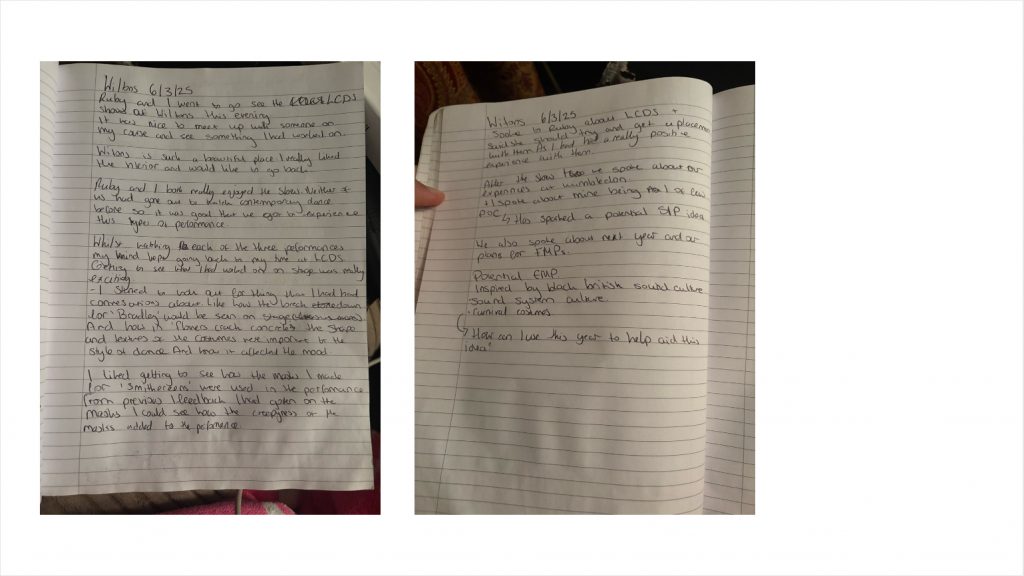 Wiltons 6/3/25
Ruby and I went to go see the LCDS
show at Wiltons this evening
It was nice to meet up with someone on
my course and see something I had worked on.
Wiltons is such a beautiful place I really liked
the interior and would like to go back.
Ruby and I both really enjoyed the show. Neither of
us had gone out to watch contemporary dance
before so it was good that we got to experience
this type of performance.
Whilst watching each of the three performances
my mind kept going back to my time at LCDS
Getting to see how I had worked on on stage was really
exciting.
- I started to look out for things that I had had
conversations about. Like how the breakdown
for 'Bradley' would be seen on stage
And how in 'flowers crack concrete' the shape
and textures of the costumes were important to the
style of dance. And how it affected the mood.
I liked getting to see how the masks I made
for 'Smithereens' were used in the performance
from previous feedback I had gotten on the
masks I could see how the creepyness of the
masks added to the performance.
Wiltons 6/3/25
Spoke to Ruby about LCDS +
said she should try and get a placement
with them as I had had a really positive
experience with them.
After the show we spoke about our
experiences at wimbledon.
+ I spoke about mine being 1 of few
POC ↳ this sparked a potential SIP idea
We also spoke about next year and our
plans for FMPs.
Potential FMP
Inspired by black british sound culture
sound system culture.
· carnival costumes.
→ How can I use this year to help aid this
idea?